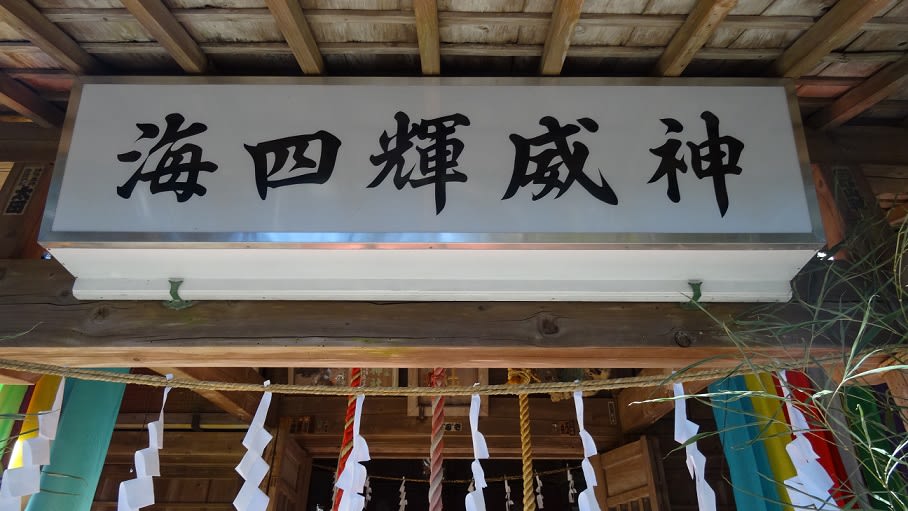 神威輝四海